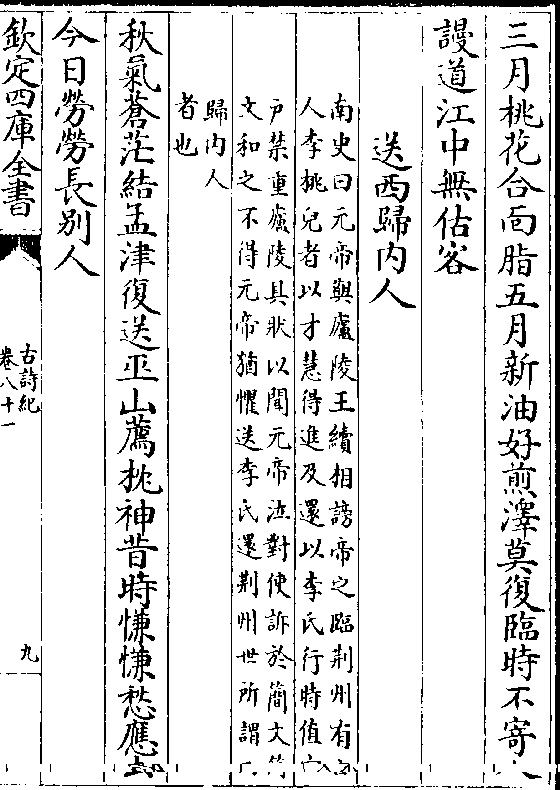 三月桃花合面脂五月新油好煎澤莫復臨時不寄
謾道江中無估客
送西歸内人
南史曰元帝與廬陵王續相謗帝之臨荆州有
人李桃兒者以才慧得進及還以李氏行時值
戸禁重廬陵具狀以聞元帝泣對使訴於簡文
文和之不得元帝猶懼送李氏還荆州世所謂
歸内人
者也
秋氣蒼茫結孟津復送巫山薦枕神昔時慊慊愁應
今日勞勞長别人
欽定四庫全書
古詩紀
卷八十一
九